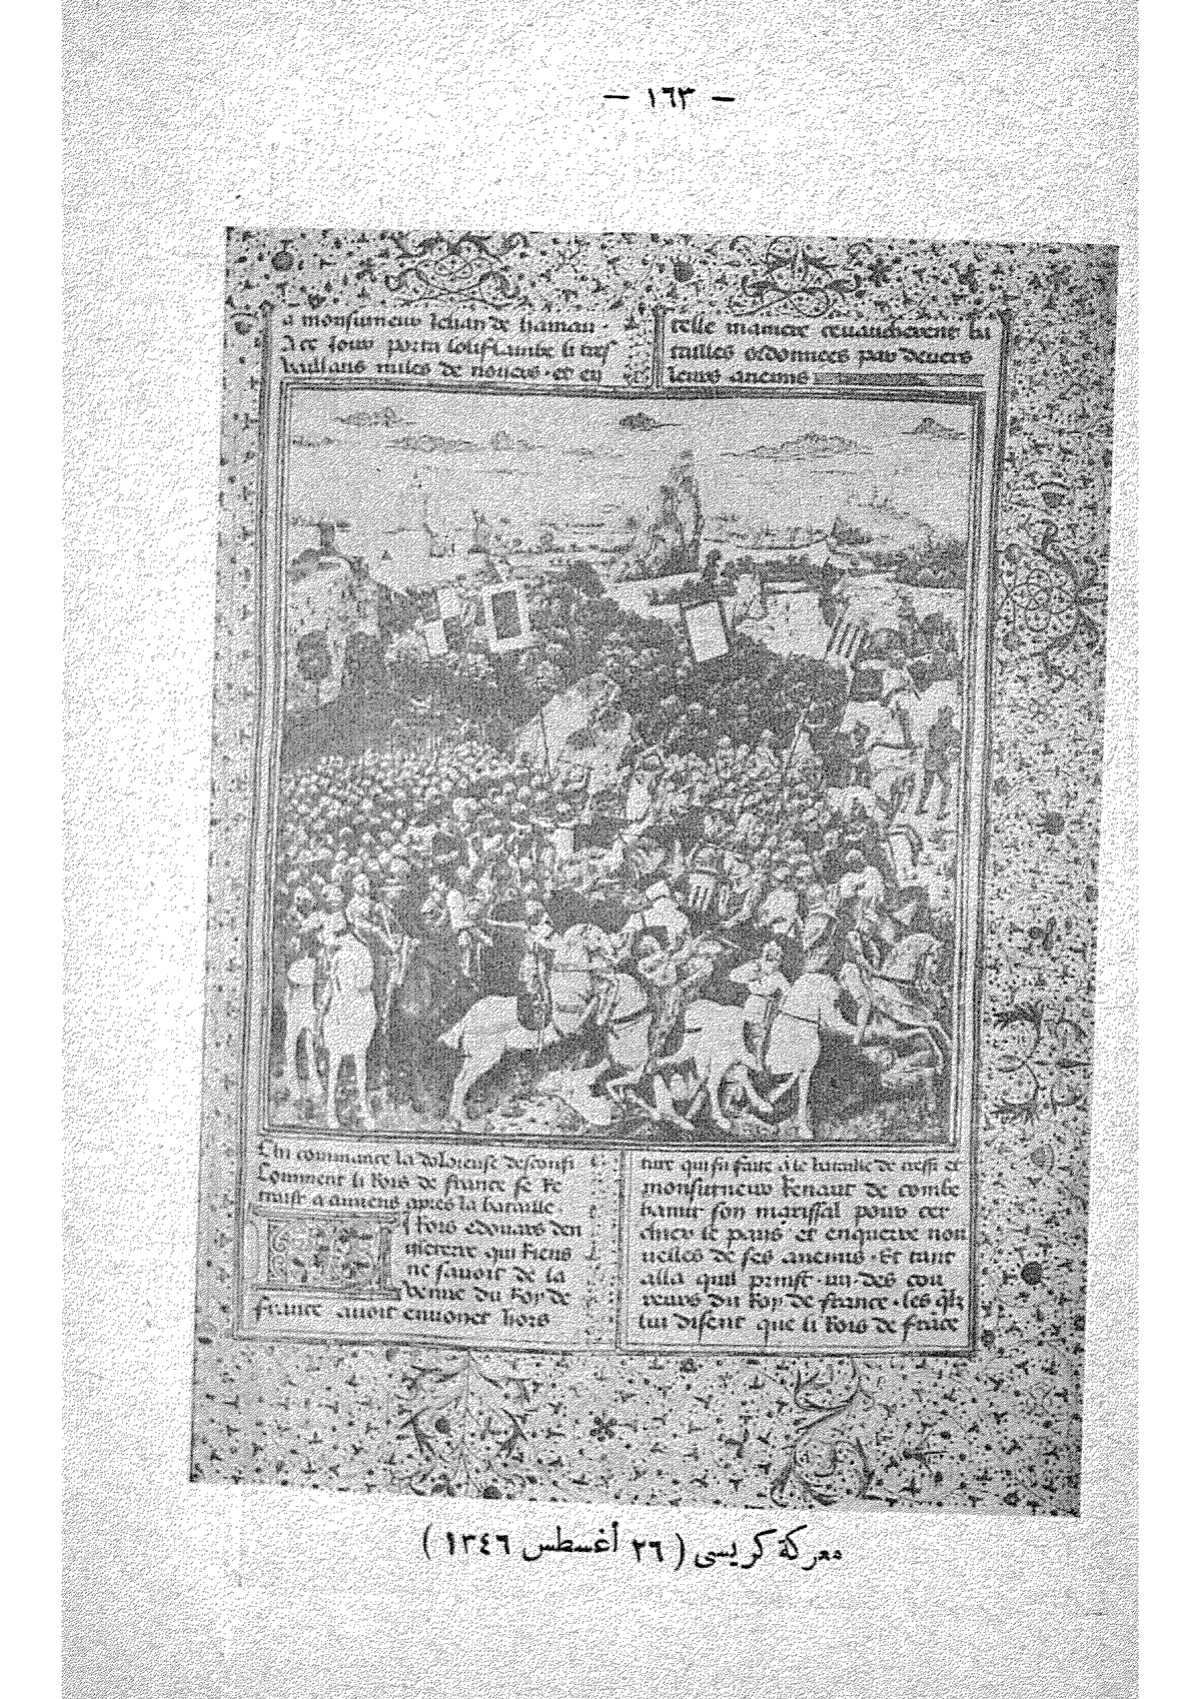 — ١٦٣ —
a monsigneur Jehan de hainau ·
A ce jour porta loriflambe li tres
vaillans miles de noiers · et en
telle maniere cevauchierent ba
tailles ordonnees par devers
leurs anemis
Chi commance la doloreuse desconfi
Comment li Rois de france se Re
traist a amiens apres la bataille .
li Rois edouars den
gleterre qui Riens
ne savoit de la
venue du Roy de
france avoit envoyet hors
ture qui fu faite a le bataille de cressi et
monsigneur Renaut de combe
hamir son marissal pour cer
chier le pais et enquerre nou
velles de ses anemis · Et tant
alla quil prinst · un des cou
reurs du Roy de france · les qlz
lui disent que li Rois de frāce
معركة كريسى ( ٢٦ أغسطس ١٣٤٦ )